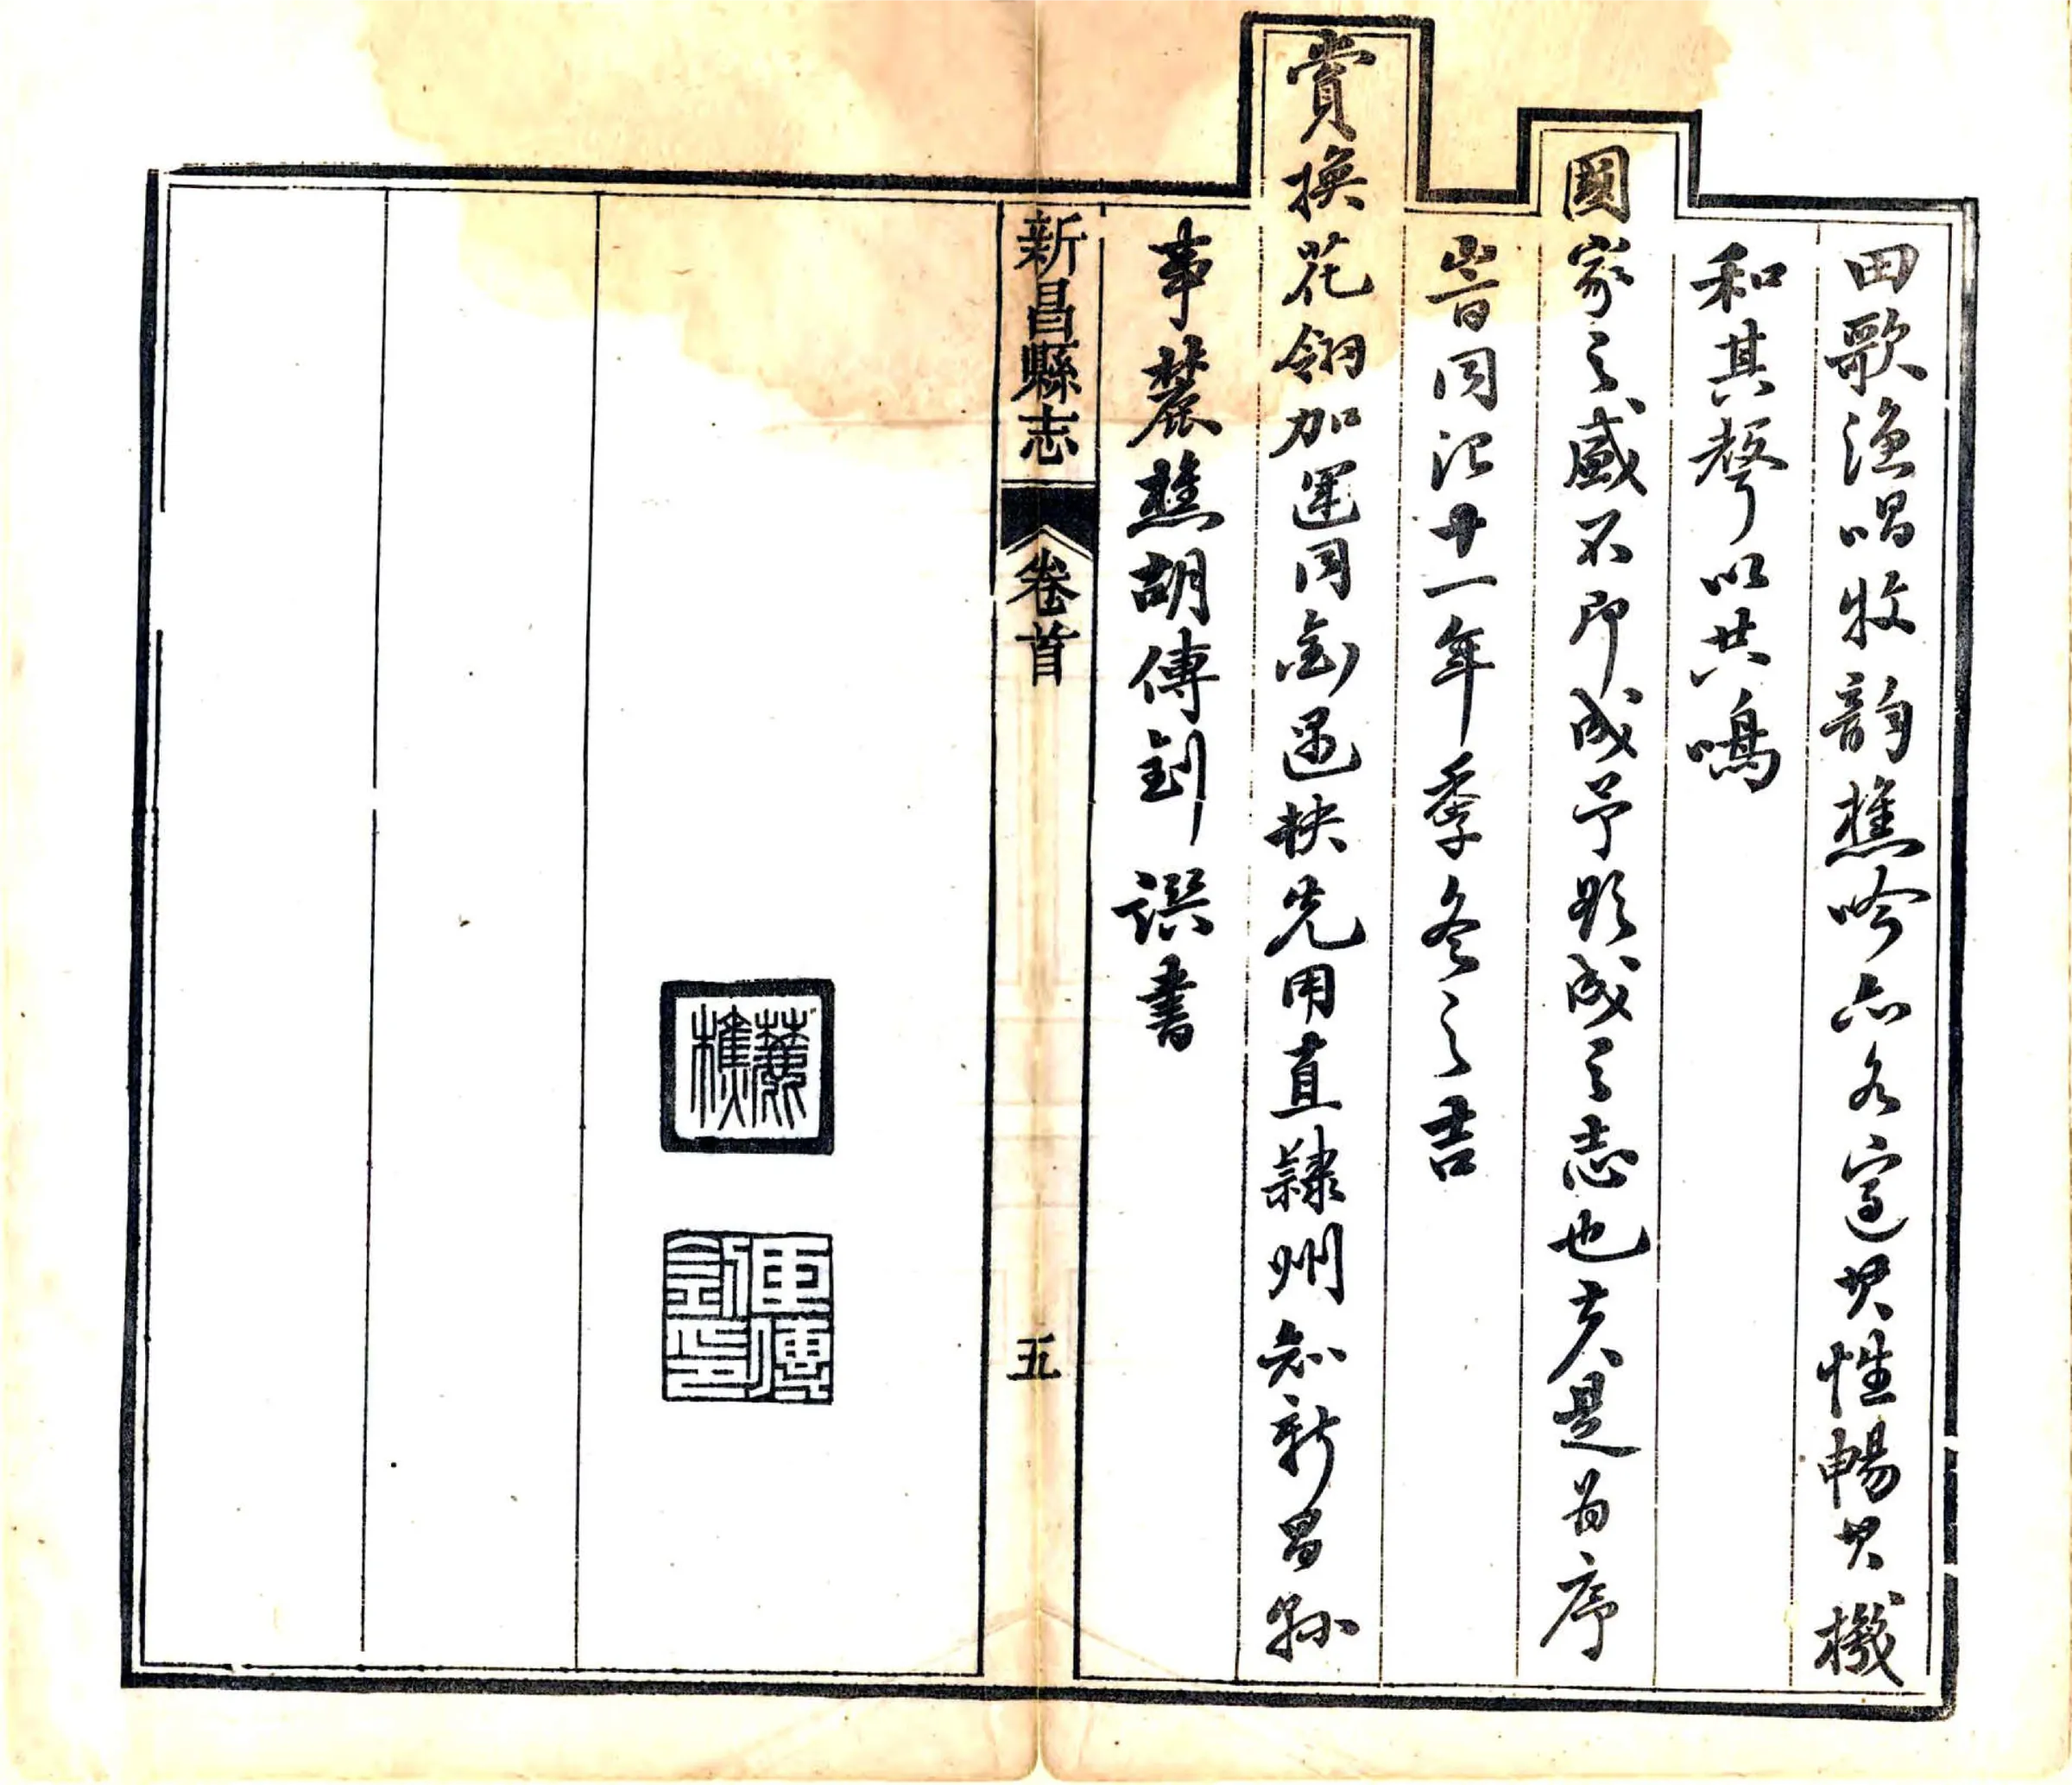 田歌漁唱牧韵樵吟亦各適其性暢其機
和其聲以共鳴
國家之盛不即成予欲成之志也夫是為序
峕同治十一年季冬之吉
賞換花翎加運同銜遇缺先用直隸州知新昌縣
事麓樵胡傳釗譔書
新昌縣志 卷首 五
麓樵
臣傳釗印